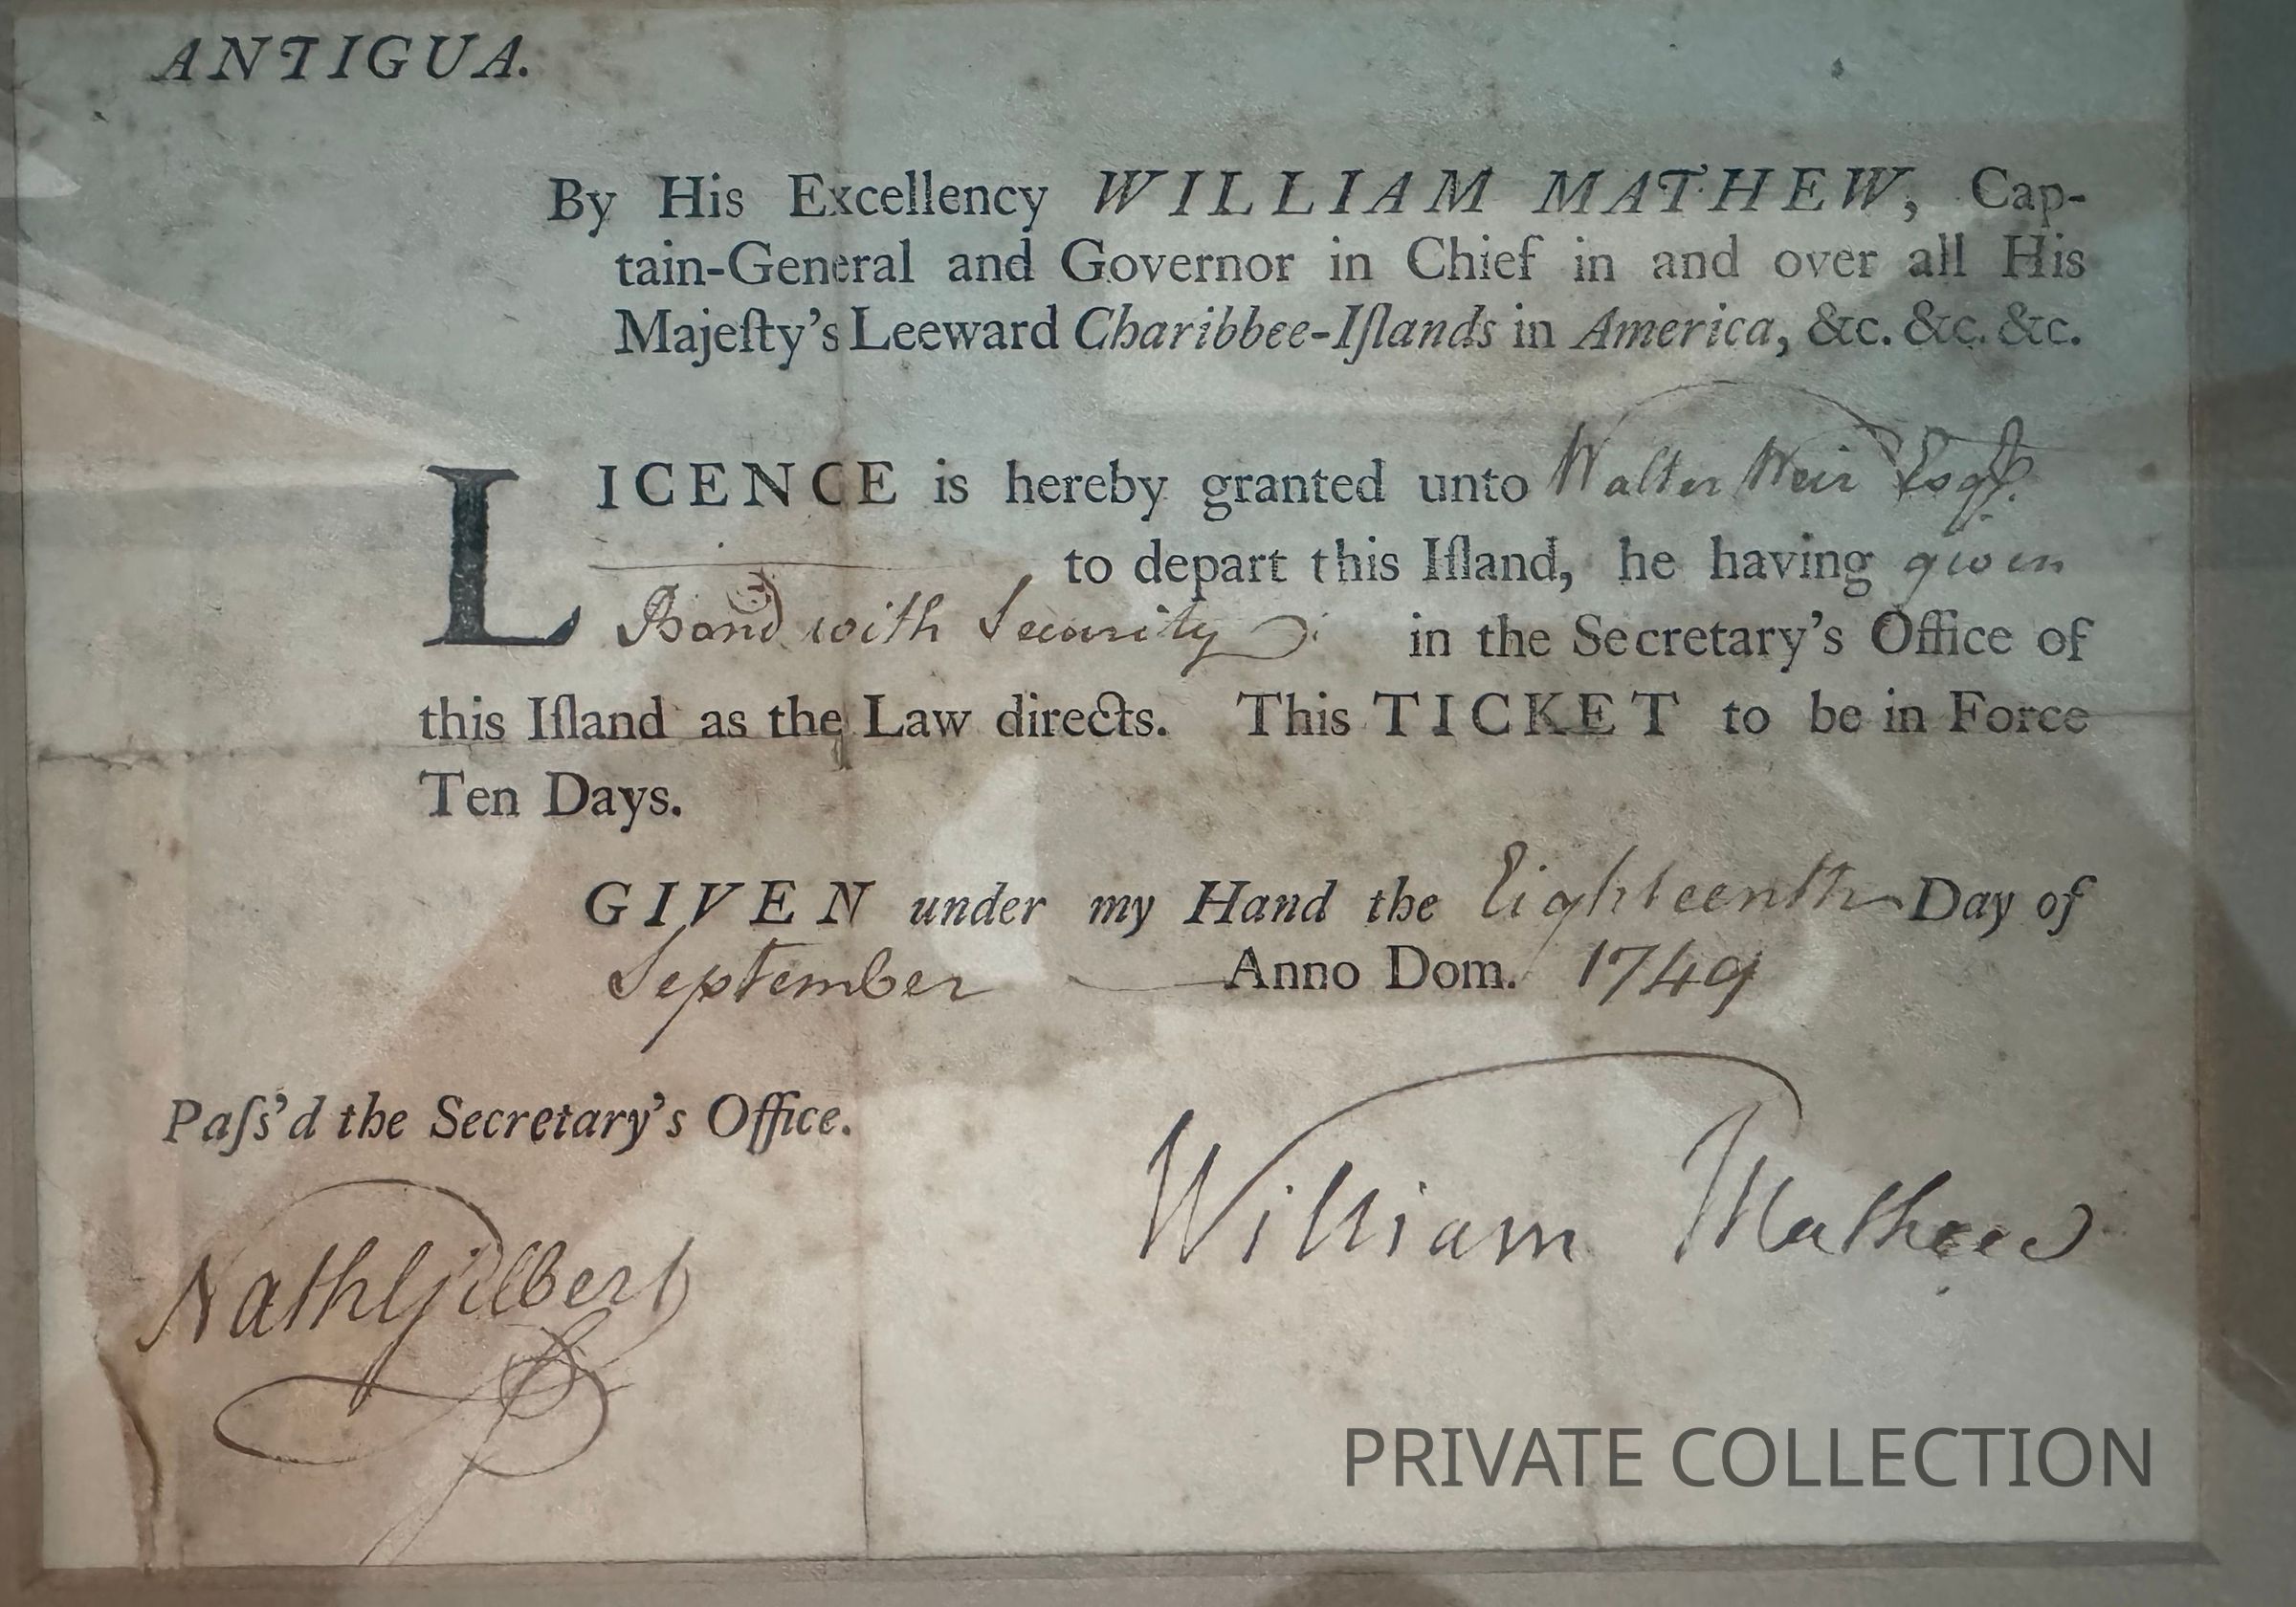 ANTIGUA.
By His Excellency WILLIAM MATHEW, Cap-
tain-General and Governor in Chief in and over all His
Majeſty's Leeward Charibbee-Iſlands in America, &c. &c. &c.
LICENCE is hereby granted unto Walter Weir Esqr.
to depart this Iſland, he having given
Bond with Security in the Secretary's Office of
this Iſland as the Law directs. This TICKET to be in Force
Ten Days.
GIVEN under my Hand the Eighteenth Day of
September Anno Dom. 1749
Paſs'd the Secretary's Office.
William Mathew
Nath Gilbert
PRIVATE COLLECTION